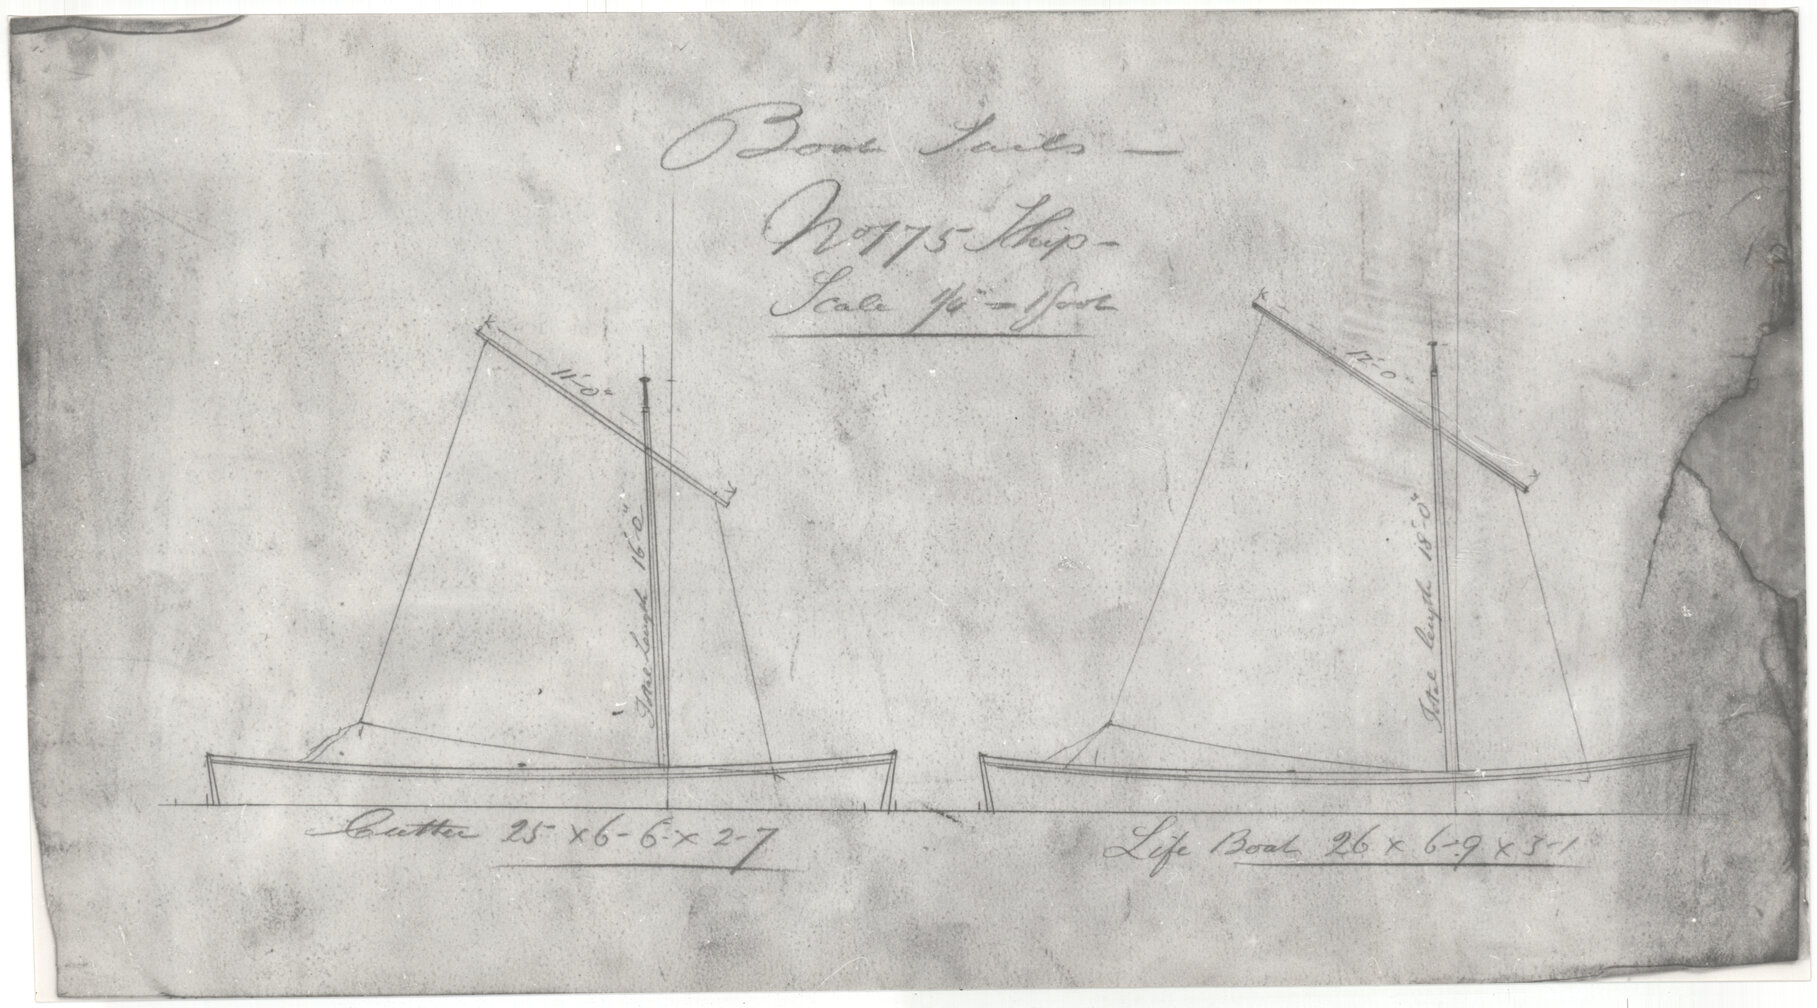 Boat Sails —
No 175 Ship -
Scale 1/4" = 1 foot
11'-0"
12'-0"
Total Length 16'-0"
Total length 18'-0"
Cutter 25 x 6-6 x 2-7
Life Boat 26 x 6-9 x 3-1